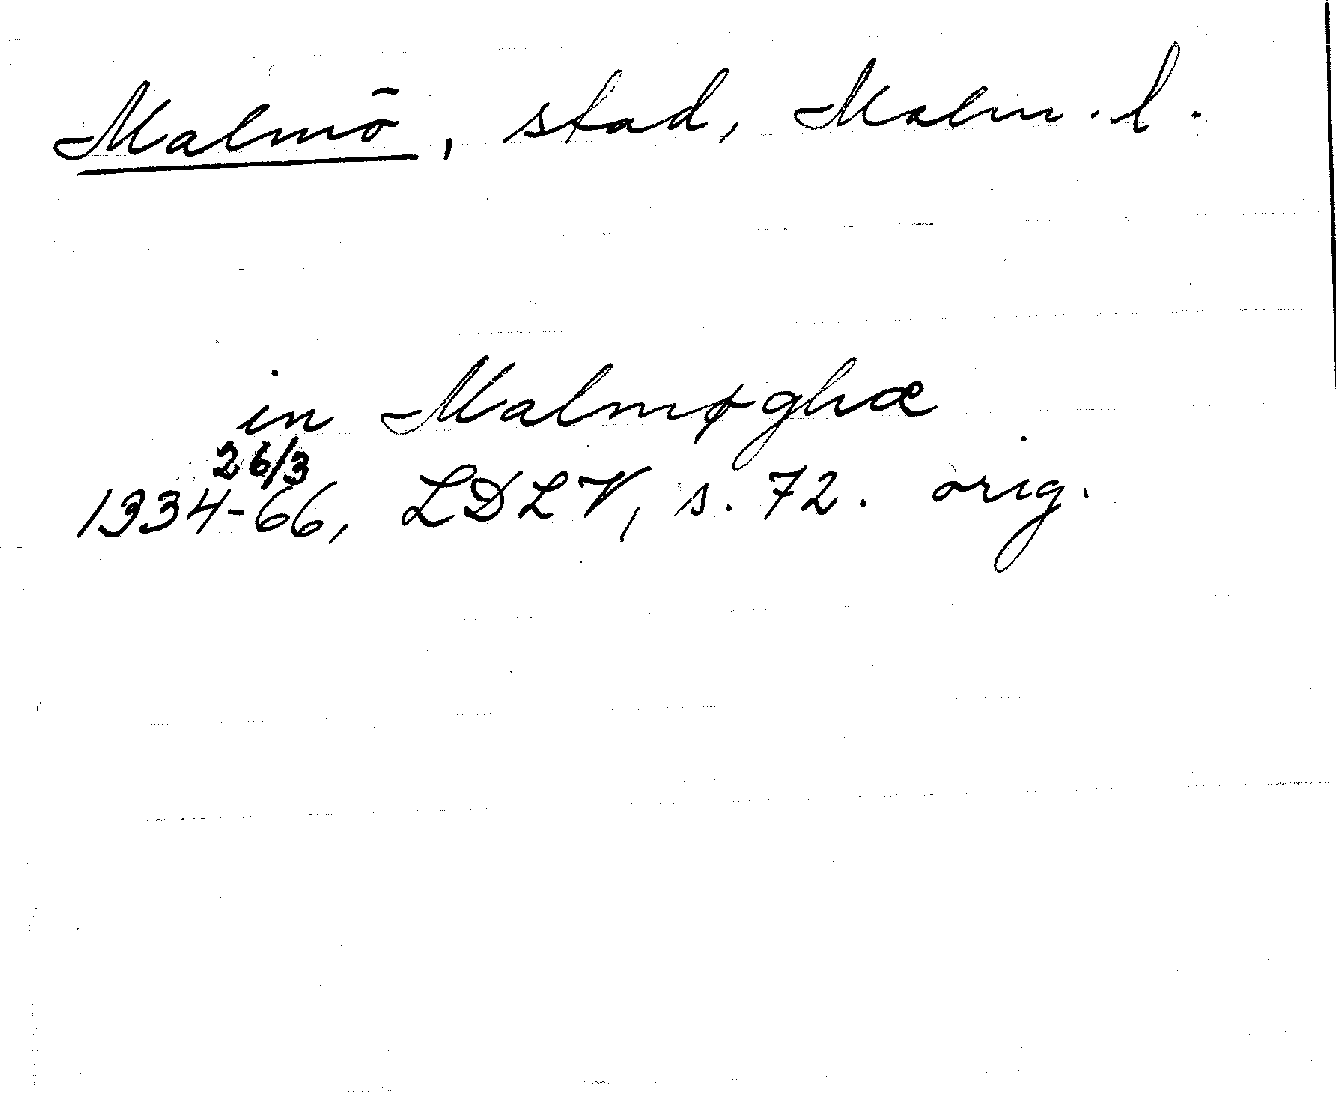 Malmö, stad, Malm. l.
in Malmøghæ
26/3
1334-66, LDLV, s. 72. orig.